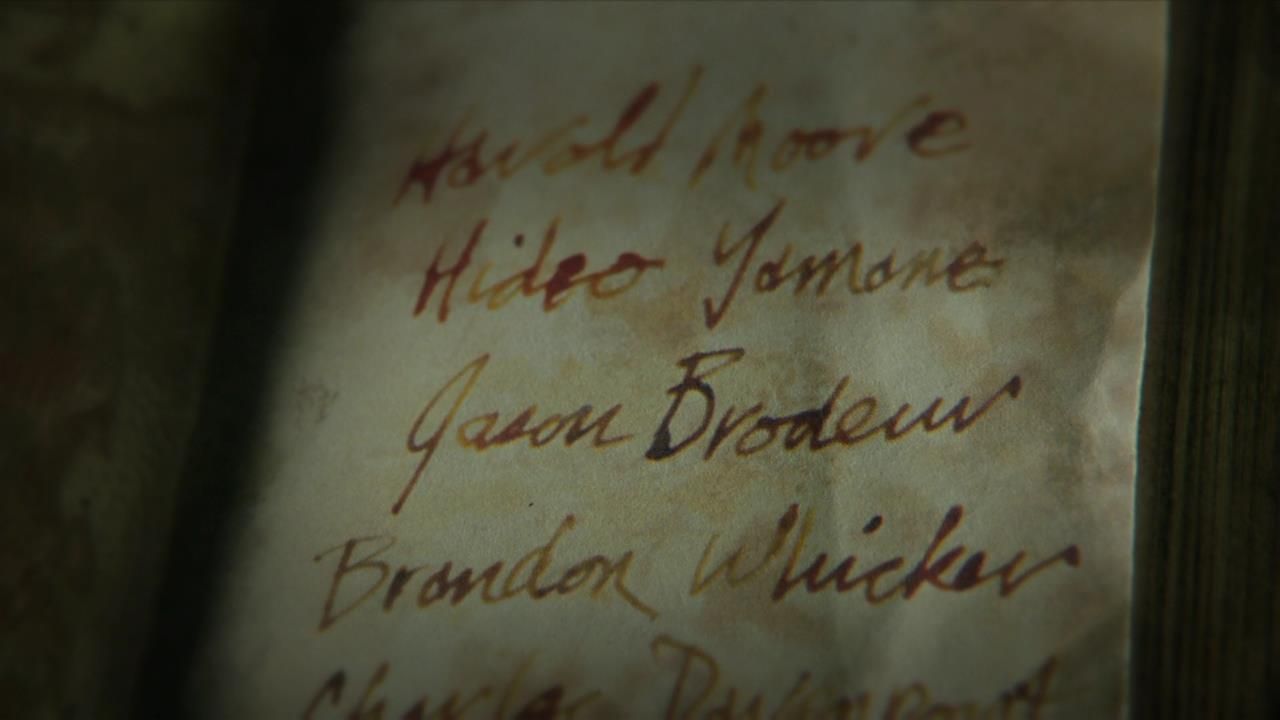 Harold Moore
Hideo Yamane
Jason Brodeur
Brandon Whicker
Charles Davenport